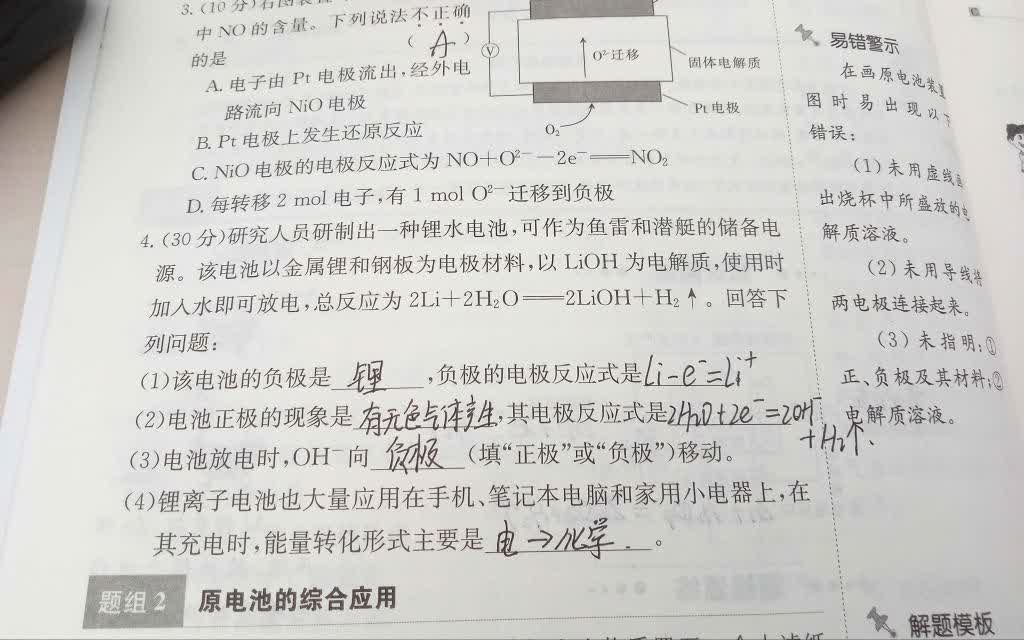 中NO的含量。下列说法不正确
的是
( A )
A. 电子由 Pt 电极流出,经外电
路流向 NiO 电极
B. Pt 电极上发生还原反应
C. NiO 电极的电极反应式为 NO+O²⁻－2e⁻══NO₂
D. 每转移 2 mol 电子,有 1 mol O²⁻ 迁移到负极
V
O²⁻迁移
固体电解质
Pt 电极
O₂
4. (30 分)研究人员研制出一种锂水电池,可作为鱼雷和潜艇的储备电
源。该电池以金属锂和钢板为电极材料,以 LiOH 为电解质,使用时
加入水即可放电,总反应为 2Li+2H₂O══2LiOH+H₂↑。回答下
列问题:
(1)该电池的负极是 锂 ,负极的电极反应式是Li-e⁻=Li⁺
(2)电池正极的现象是 有无色气体产生,其电极反应式是2H₂O+2e⁻=2OH⁻
+H₂↑.
(3)电池放电时,OH⁻向 负极 (填“正极”或“负极”)移动。
(4)锂离子电池也大量应用在手机、笔记本电脑和家用小电器上,在
其充电时,能量转化形式主要是 电→化学. 。
题组 2 原电池的综合应用
易错警示
在画原电池装置
图时易出现以下
错误:
(1)未用虚线画
出烧杯中所盛放的电
解质溶液。
(2)未用导线将
两电极连接起来。
(3)未指明:①
正、负极及其材料;②
电解质溶液。
解题模板